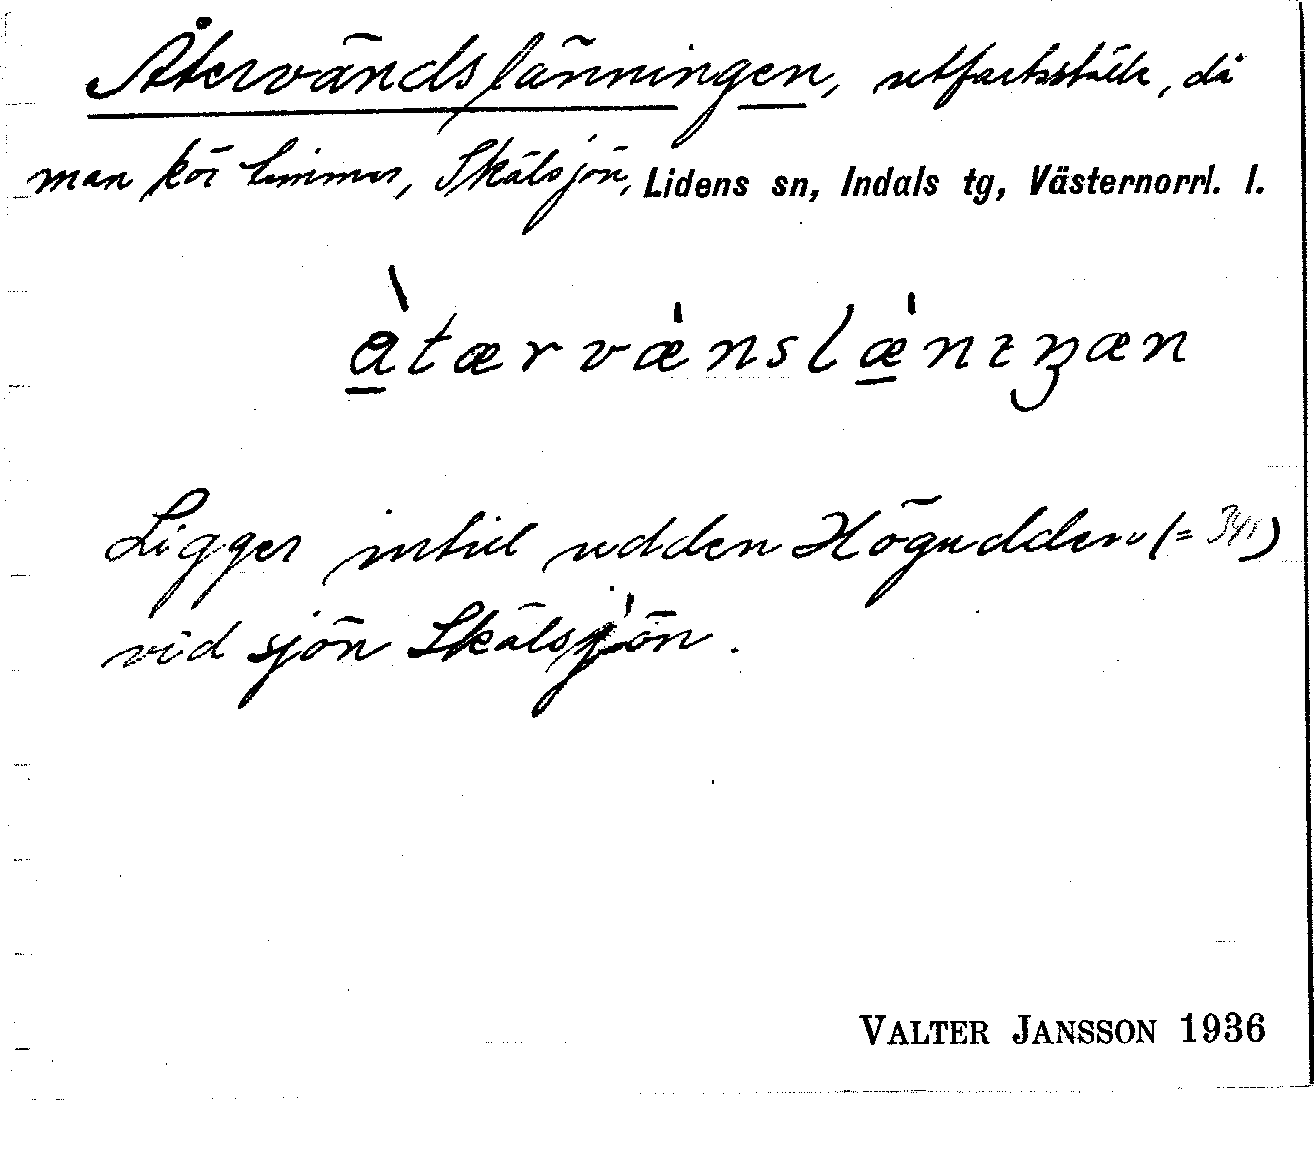 Återvändslänningen, utfartsställe, då
man kör timmer, Skälsjön, Lidens sn, Indals tg, Västernorrl. l.
åtærvænslænıŋæn
Ligger intill udden Högudden (= 341)
vid sjön Skälsjön.
VALTER JANSSON 1936